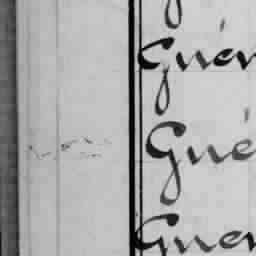 Guér
Gué
Guer